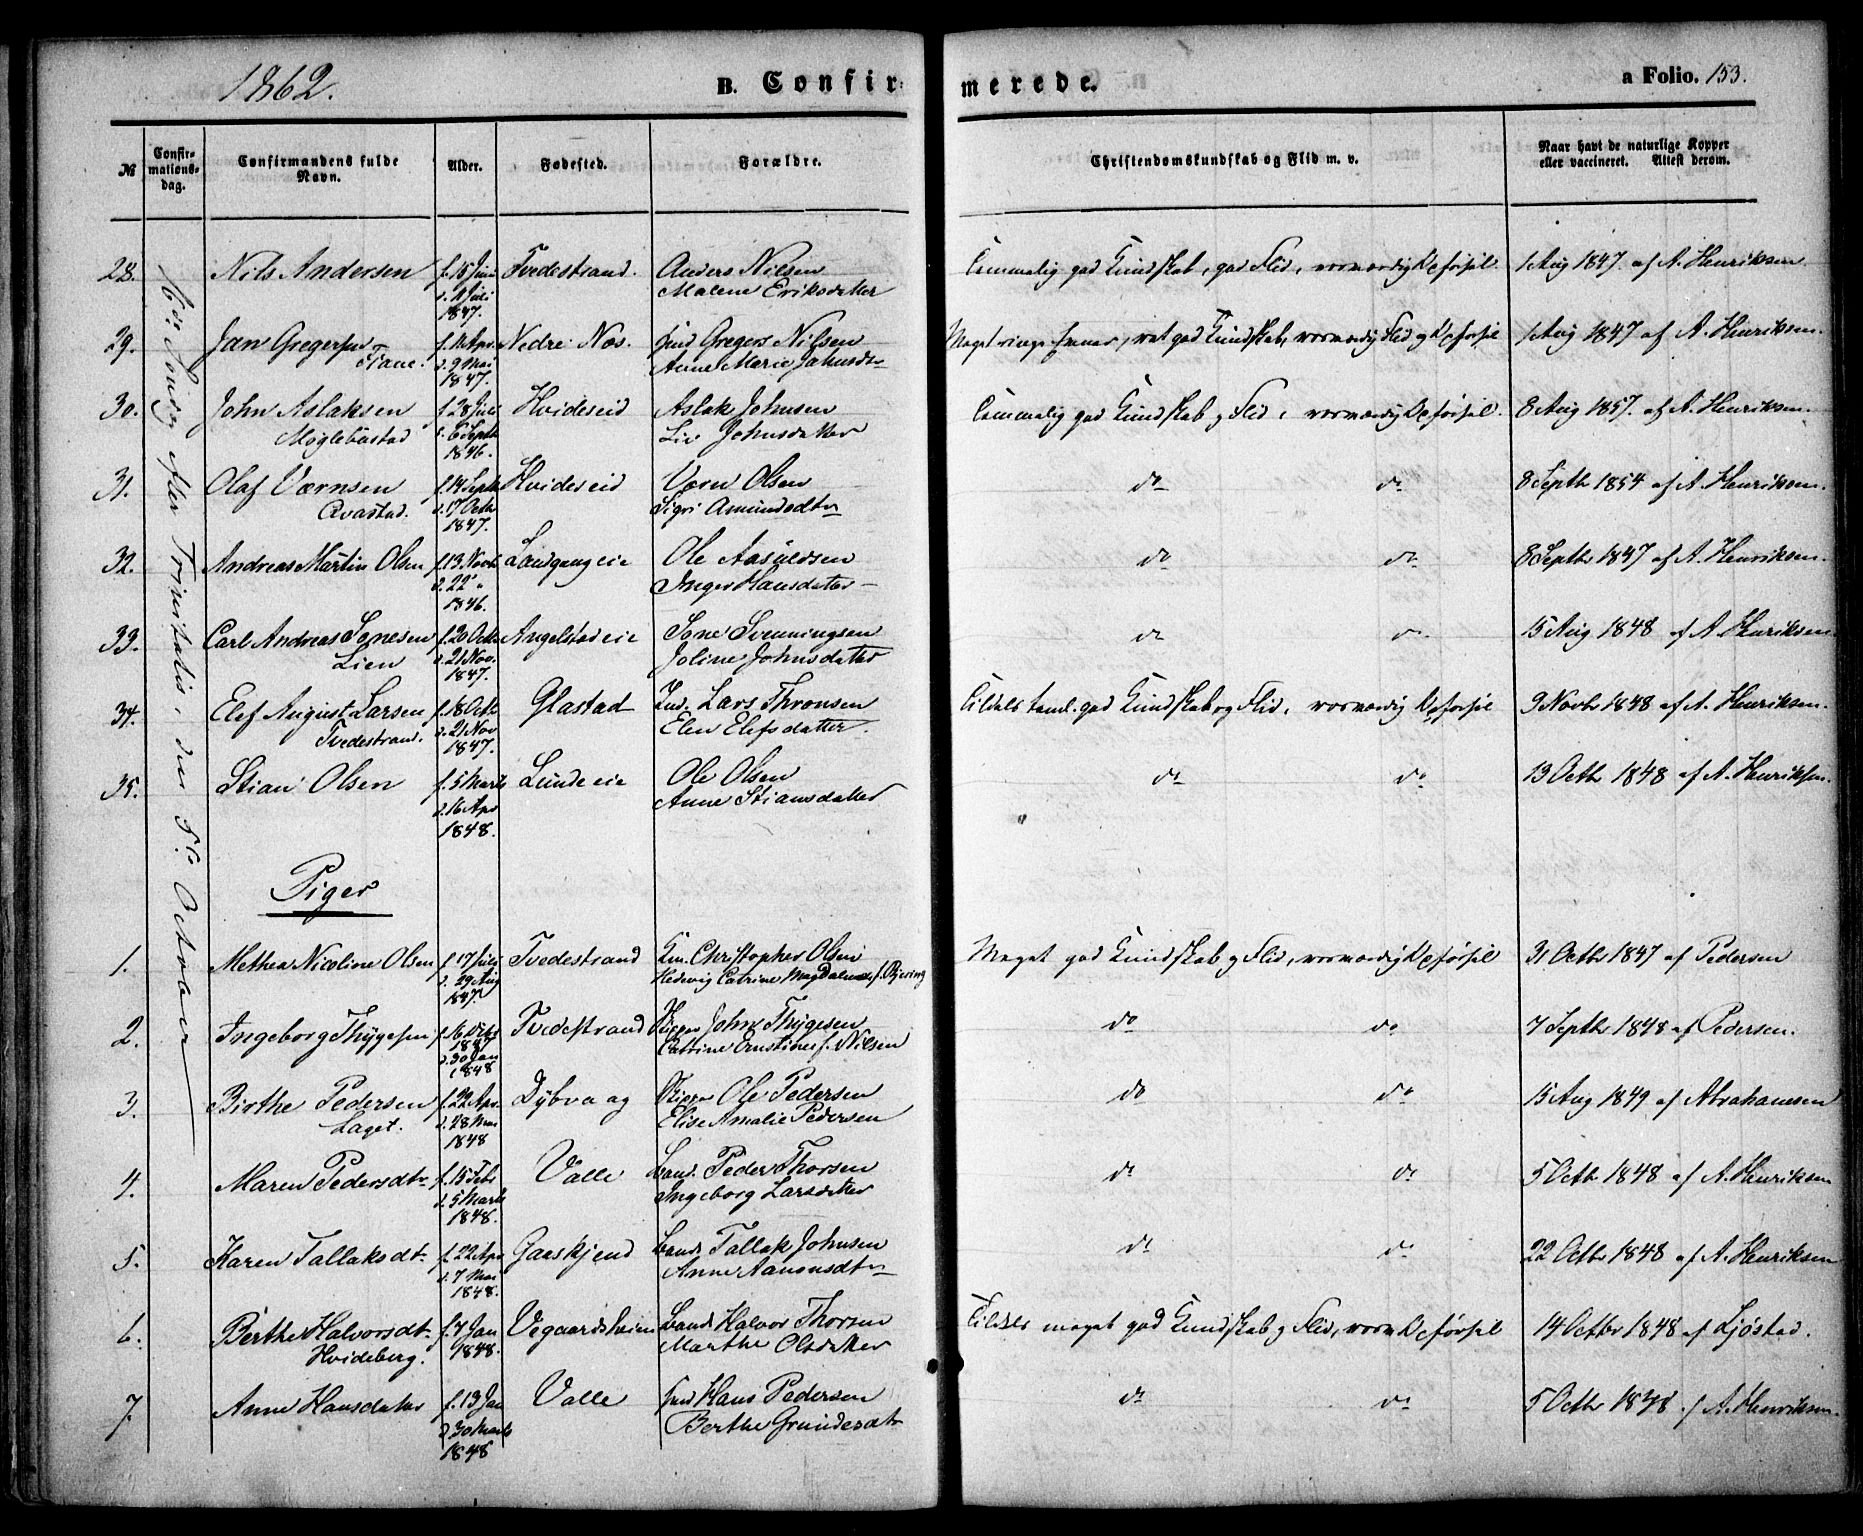 1862.
B. Confirmerede.
a Folio. 153.
№
Confirmationsdag.
Confirmandens fulde Navn.
Alder.
Fødested.
Forældre.
Christendomskundskab og Flid m. v.
Naar havt de naturlige Kopper eller vaccineret. Attest derom.
16de Søndag efter Trinitatis, den 5te October
28. Nils Andersen f. 15 Juni Tvedestrand. Anders Nielsen Temmelig god Kundskab, god Flid, 1 Aug 1847. af A. Henriksen.
d. 11 Juli Malene Eriksdatter
1847.
29. Jan Gregersen f. 11 Apr. Nedre Næs. Gregers Nilsen Meget ringe Evner, god Kundskab, Flid og 1 Aug 1847 af A. Henriksen.
d. 9 Mai Anne Marie
1847.
30. John Aslaksen f. 28 Juli Hvideseid Aslak Johnsen Temmelig god Kundskab og Flid, 8 Aug 1857. af A. Henriksen.
Møglebustad d. 6 Septb Liv Johnsdatter
1846.
31. Olaf Værnsen f. 14 Septb Hvideseid Værn Olsen do do 8 Septb 1854 af A. Henriksen.
Qvastad. d. 17 Octb Sigri Amundsdtr
1847.
32. Andreas Martin Olsen f. 13 Novb Landgang eie Ole do do 8 Septbr 1847 af A. Henriksen.
d. 22 " Inger Hansdatter
1846.
33. Carl Andreas Tønesen f. 20 Octb Angelstad eie Tone Svenningsen do do 15 Aug 1848 af A. Henriksen.
Lien d. 21 Nov. Joline Johnsdatter
1847.
34. Elef August Larsen f. 18 Octb Glastad Lars Thronsen Tildels teml. god Kundskab og Flid, 9 Novbr 1848 af A. Henriksen.
Tvedestrand. d. 21 Nov Elen Elefsdatter.
1847.
35. Stian Olsen f. 5 Marts Lunde eie Ole Olsen do do 13 Octbr 1848 af A. Henriksen.
d. 16 Apr Anne Stiansdatter
1848.
Piger
1. Methea Nicoline Olsen f. 17 Juli Tvedestrand Christopher Olsen Meget god Kundskab og Flid, 31 Octbr 1847 af Pedersen
d. 29 Aug Hedevig Catrine Magdalene f. Bjering
1847.
2. Ingeborg Thygesen f. 16 Tvedestrand Skipper John Thygesen do do 7 Septbr 1848 af Pedersen.
1847 Catrine Ernstine f. Nilsen
d. 30 Jan
1848
3. Birthe Pedersen f. 22 Apr. Dybvaag Skipper Ole Pedersen do do 15 Aug 1849 af Abrahamsen
Laget. d. 28 Mai Elise Amalie Pedersen
1848
4. Maren Pedersdtr f. 15 Febr Valle Peder Thorsen do do 5 Octb 1848 af A. Henriksen
d. 5 Marts Ingeborg Larsdatter
1848.
5. Karen Tallaksdtr f. 22 Apr Gaaskjend Tallak Johnsen do do 22 Octbr 1848 af A. Henriksen
d. 7 Mai Anne Aanonsdtr
1848.
6. Berthe Halvorsdtr f. 7 Jan Vegaardsheien Halvor Thorsen Tildels meget god Kundskab og Flid, 14 Octbr 1848 af Ljøstad.
Hvideberg. 1848. Marthe Olsdatter
7. Anne Hansdatter f. 13 Jan Valle Hans Pedersen do do 5 Octbr 1848 af A. Henriksen.
d. 30 Marts Berthe Grundesdtr
1848